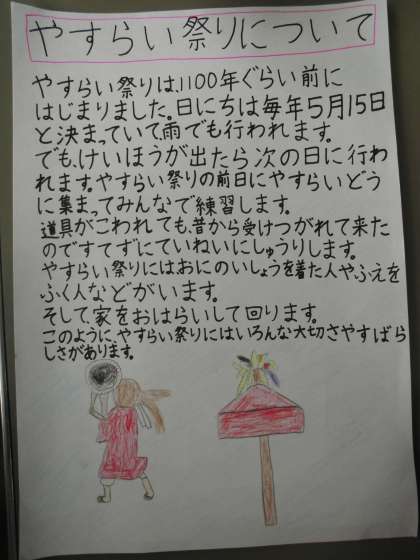 やすらい祭りについて
やすらい祭りは、1100年ぐらい前に
はじまりました。日にちは毎年5月15日
と決まっていて雨でも行われます。
でも、けいほうが出たら次の日に行わ
れます。やすらい祭りの前日にやすらいどう
に集まってみんなで練習します。
道具がこわれても、昔から受けつがれて来た
のですてずにていねいにしゅうりします。
やすらい祭りにはおにのいしょうを着た人やふえを
ふく人などがいます。
そして家をおはらいして回ります。
このように、やすらい祭りにはいろんな大切さやすばら
しさがあります。